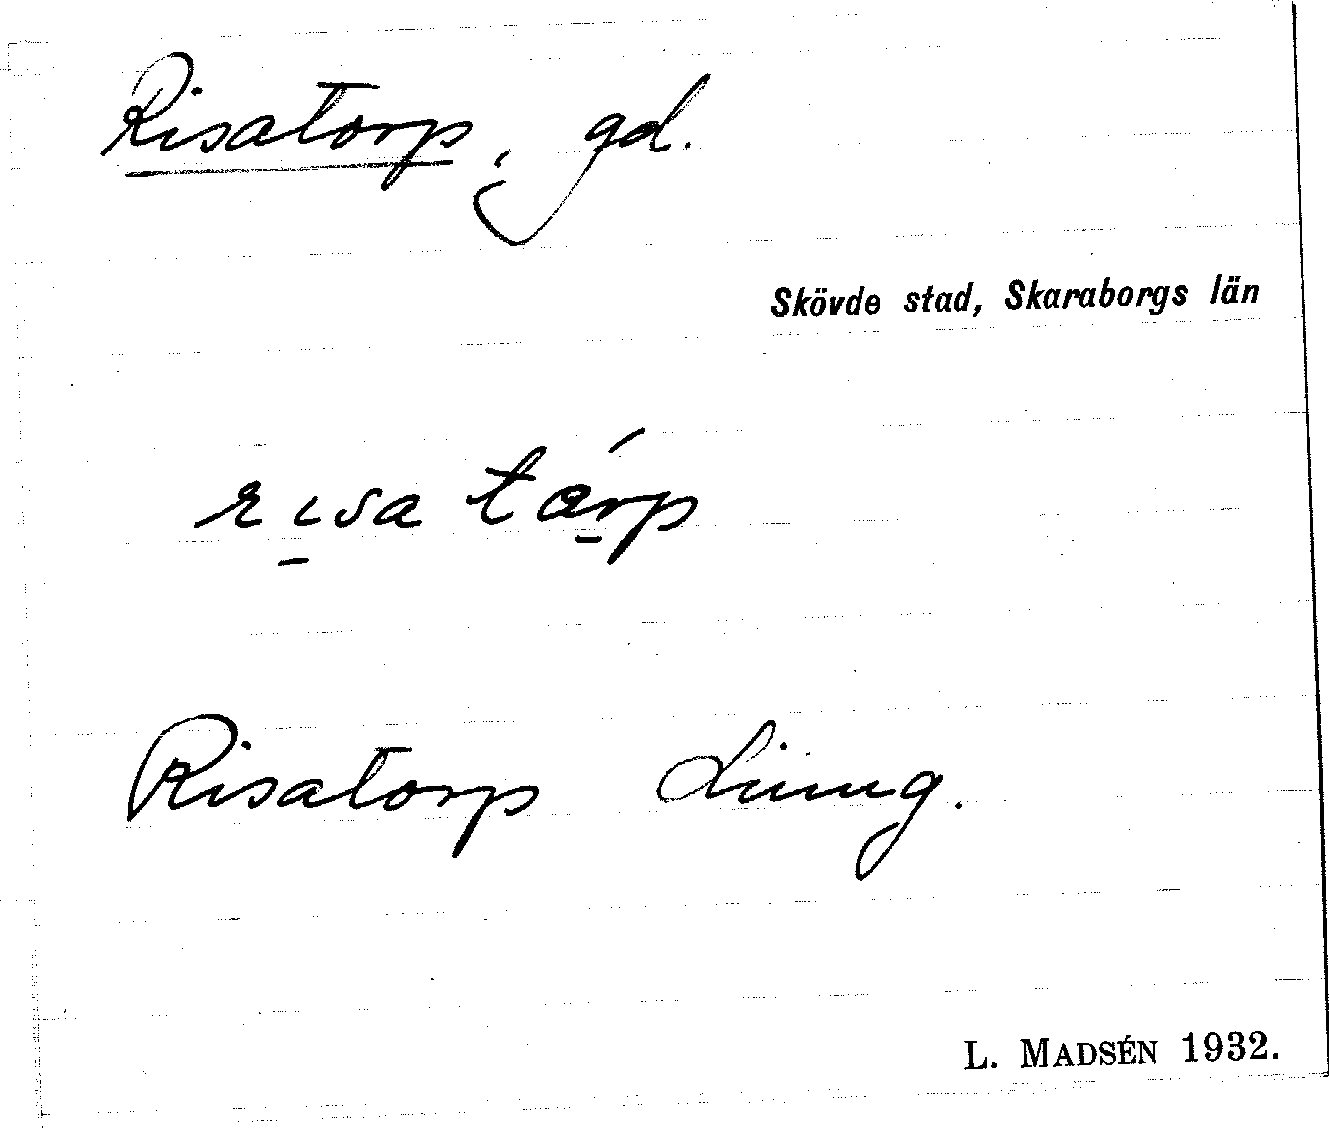 Risatorp, gd.
Skövde stad, Skaraborgs län
Risatorp
L. MADSÉN 1932.